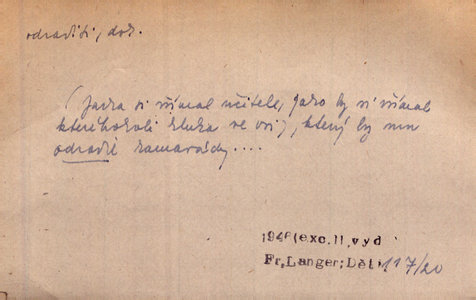 odraditi, dok.
(Jarka si všímal učitele, jako by si všímal
kteréhokoli kluka ve vsi, který by mu
odradil kamarády....
1946(exc.1),vyd
Fr.Langer;Děti 117/20